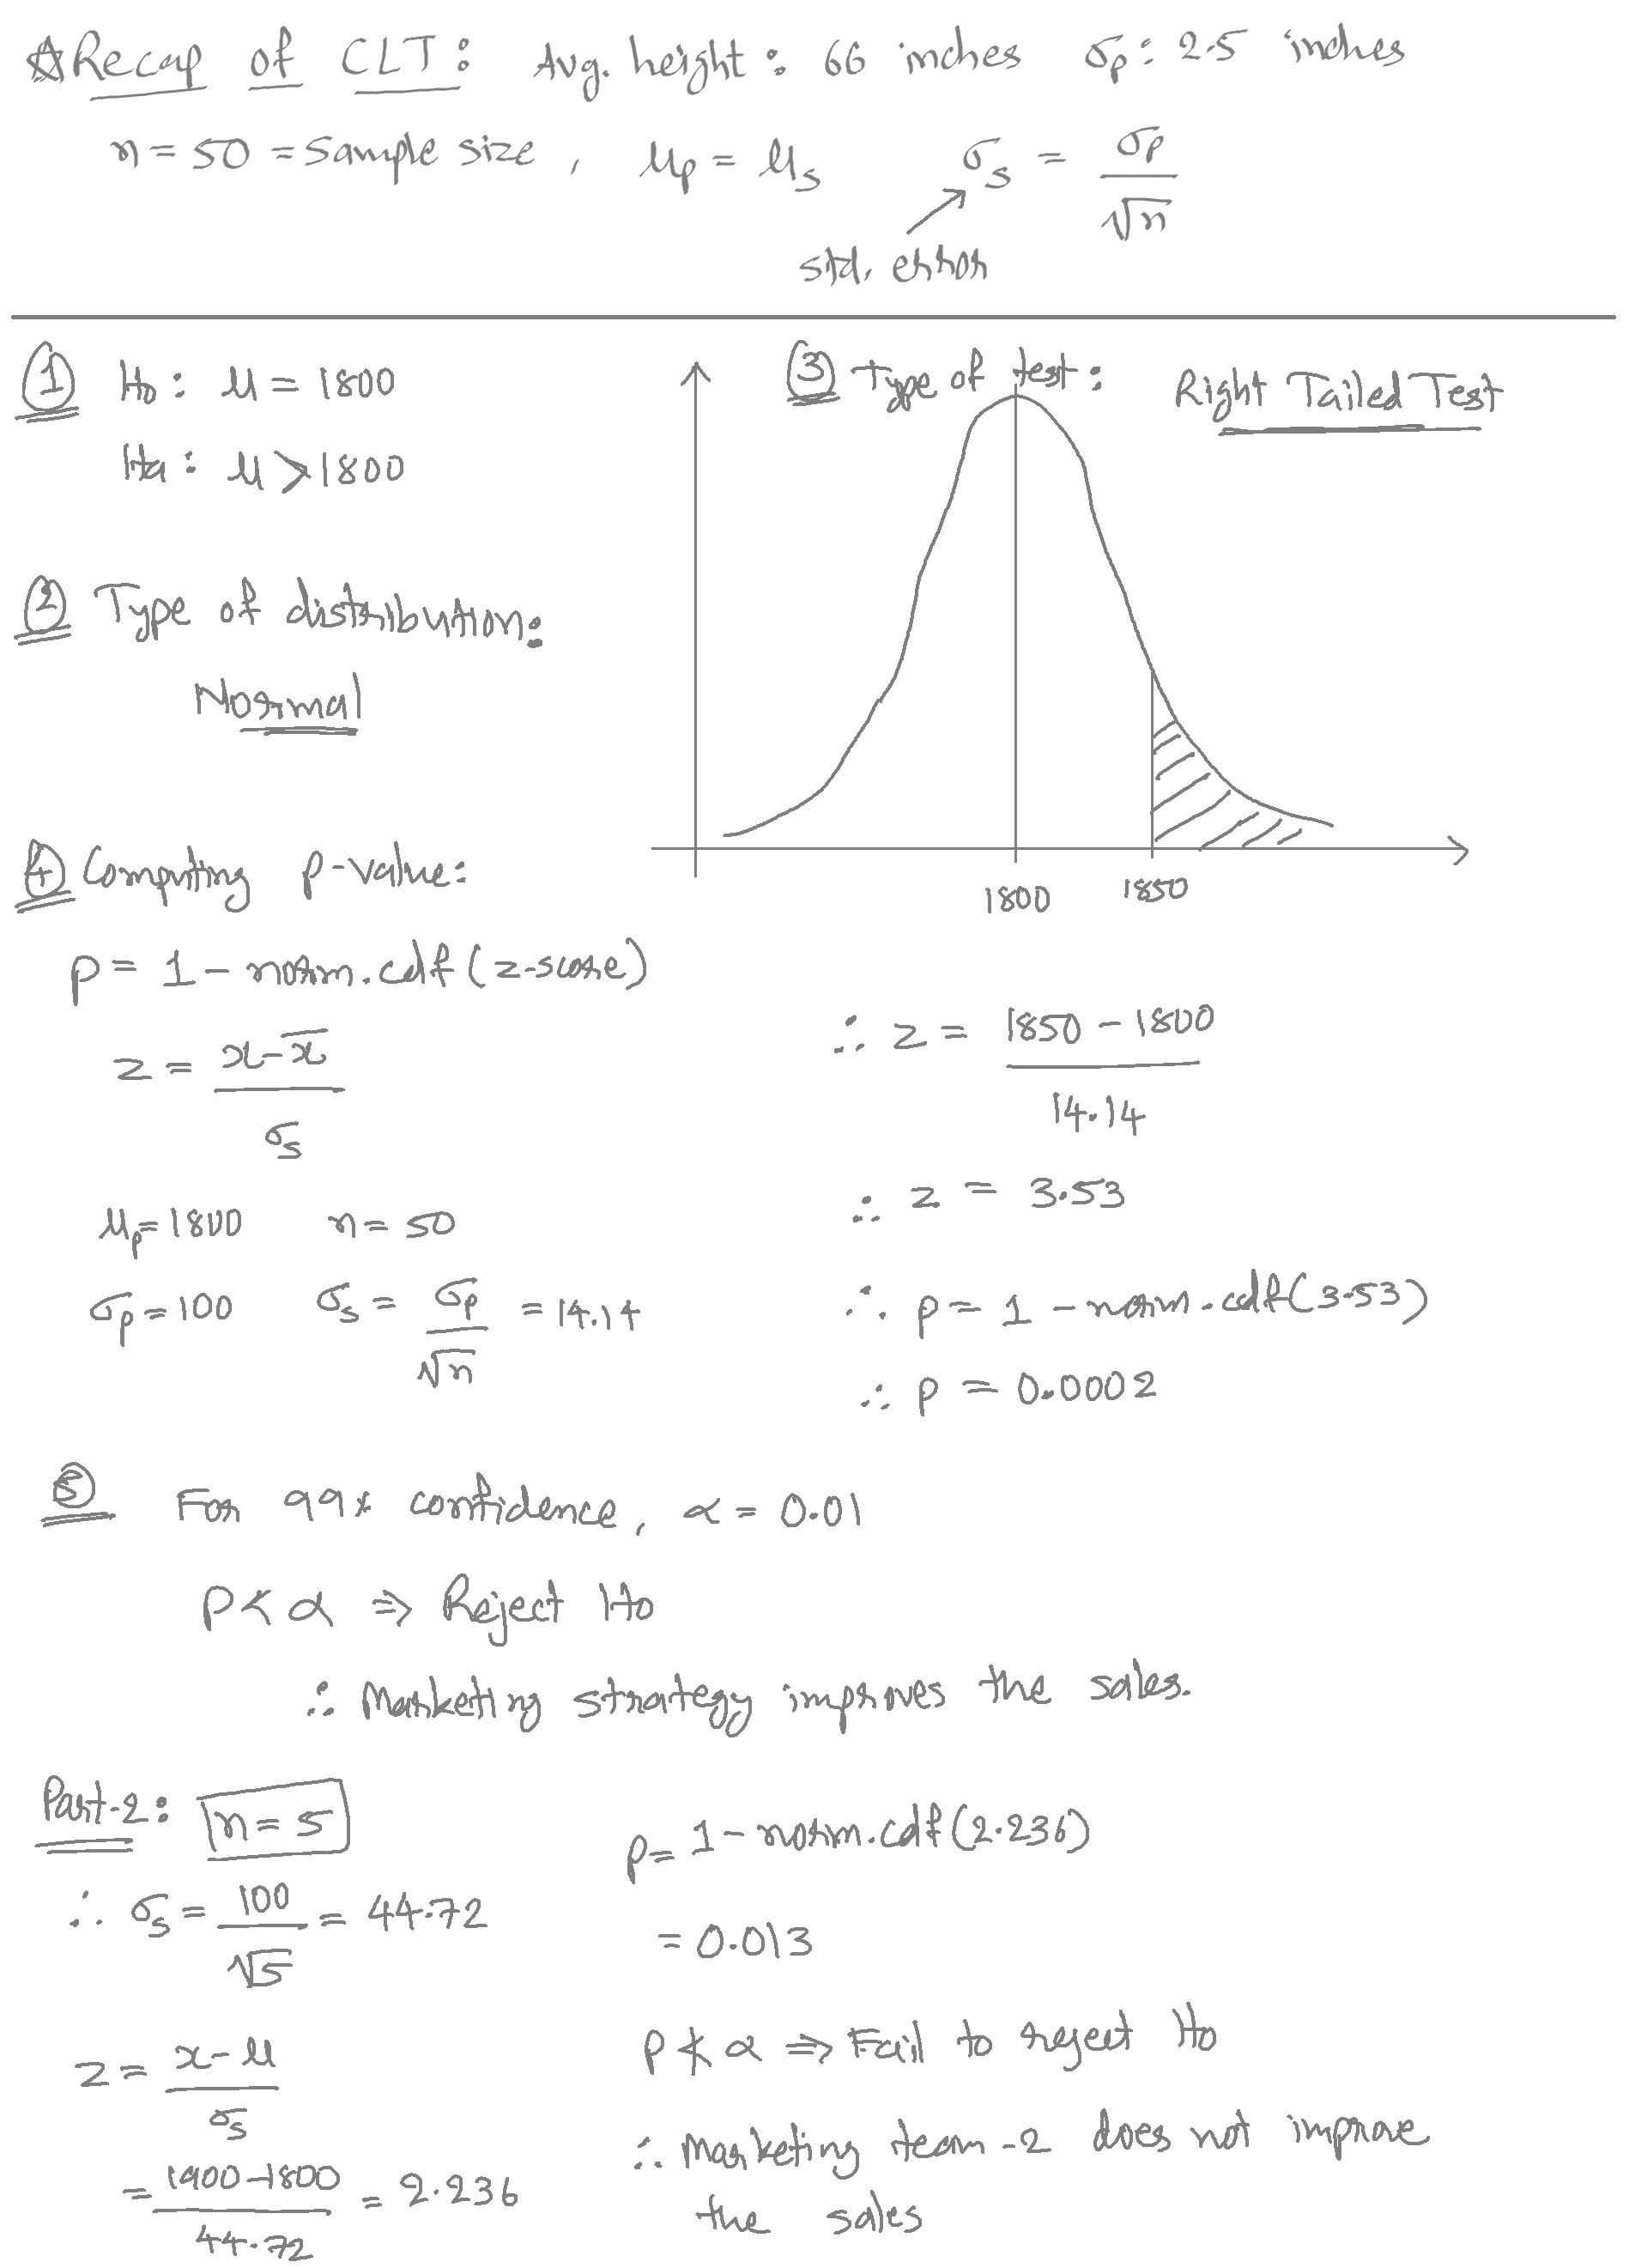 ☆Recap of CLT: Avg. height: 66 inches σp: 2.5 inches
n = 50 = Sample size, μp = μs σs = σp / √n
std. error
① H0: μ = 1800
Ha: μ > 1800
③ Type of test: Right Tailed Test
② Type of distribution:
Normal
1800 1850
④ Computing p-value:
p = 1 - norm.cdf(z-score)
z = x - x̄ / σs
μp = 1800 n = 50
σp = 100 σs = σp / √n = 14.14
∴ z = 1850 - 1800 / 14.14
∴ z = 3.53
∴ p = 1 - norm.cdf(3.53)
∴ p = 0.0002
⑤ For 99% confidence, α = 0.01
P < α ⇒ Reject H0
∴ Marketing strategy improves the sales.
Part-2: n = 5
∴ σs = 100 / √5 = 44.72
z = x - μ / σs
= 1900 - 1800 / 44.72 = 2.236
p = 1 - norm.cdf(2.236)
= 0.013
P ≮ α ⇒ Fail to reject H0
∴ Marketing team-2 does not improve
the sales